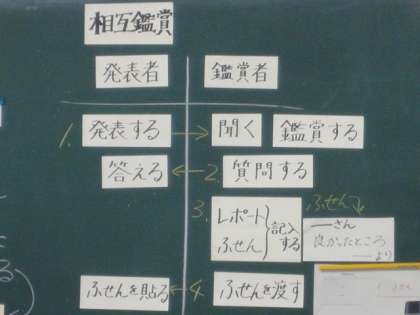 相互鑑賞
発表者 鑑賞者
1. 発表する → 聞く 鑑賞する
答える ← 2. 質問する
3. レポート ふせん } 記入する
ふせん
――さん
良かったところ
――より
ふせんを貼る ← 4. ふせんを渡す